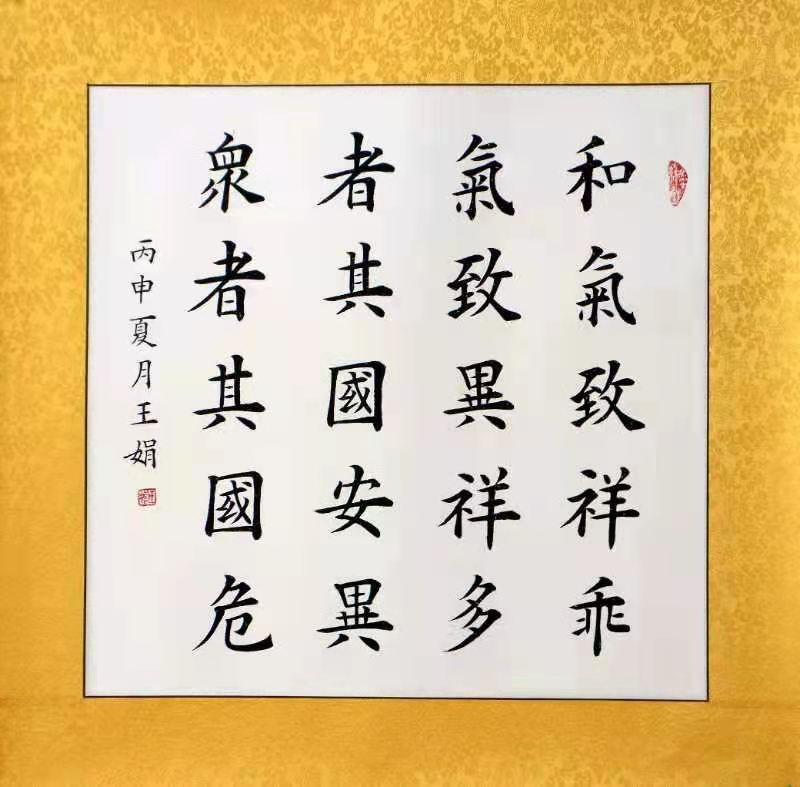 和氣致祥乖
氣致異祥多
者其國安異
衆者其國危
丙申夏月王娟